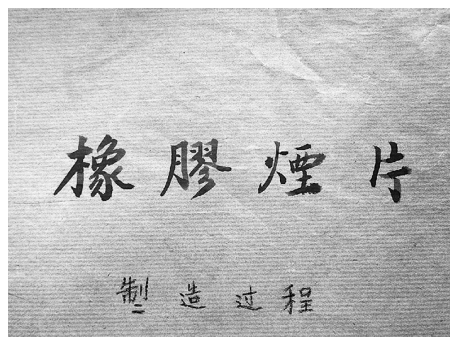 橡膠煙片
製造过程